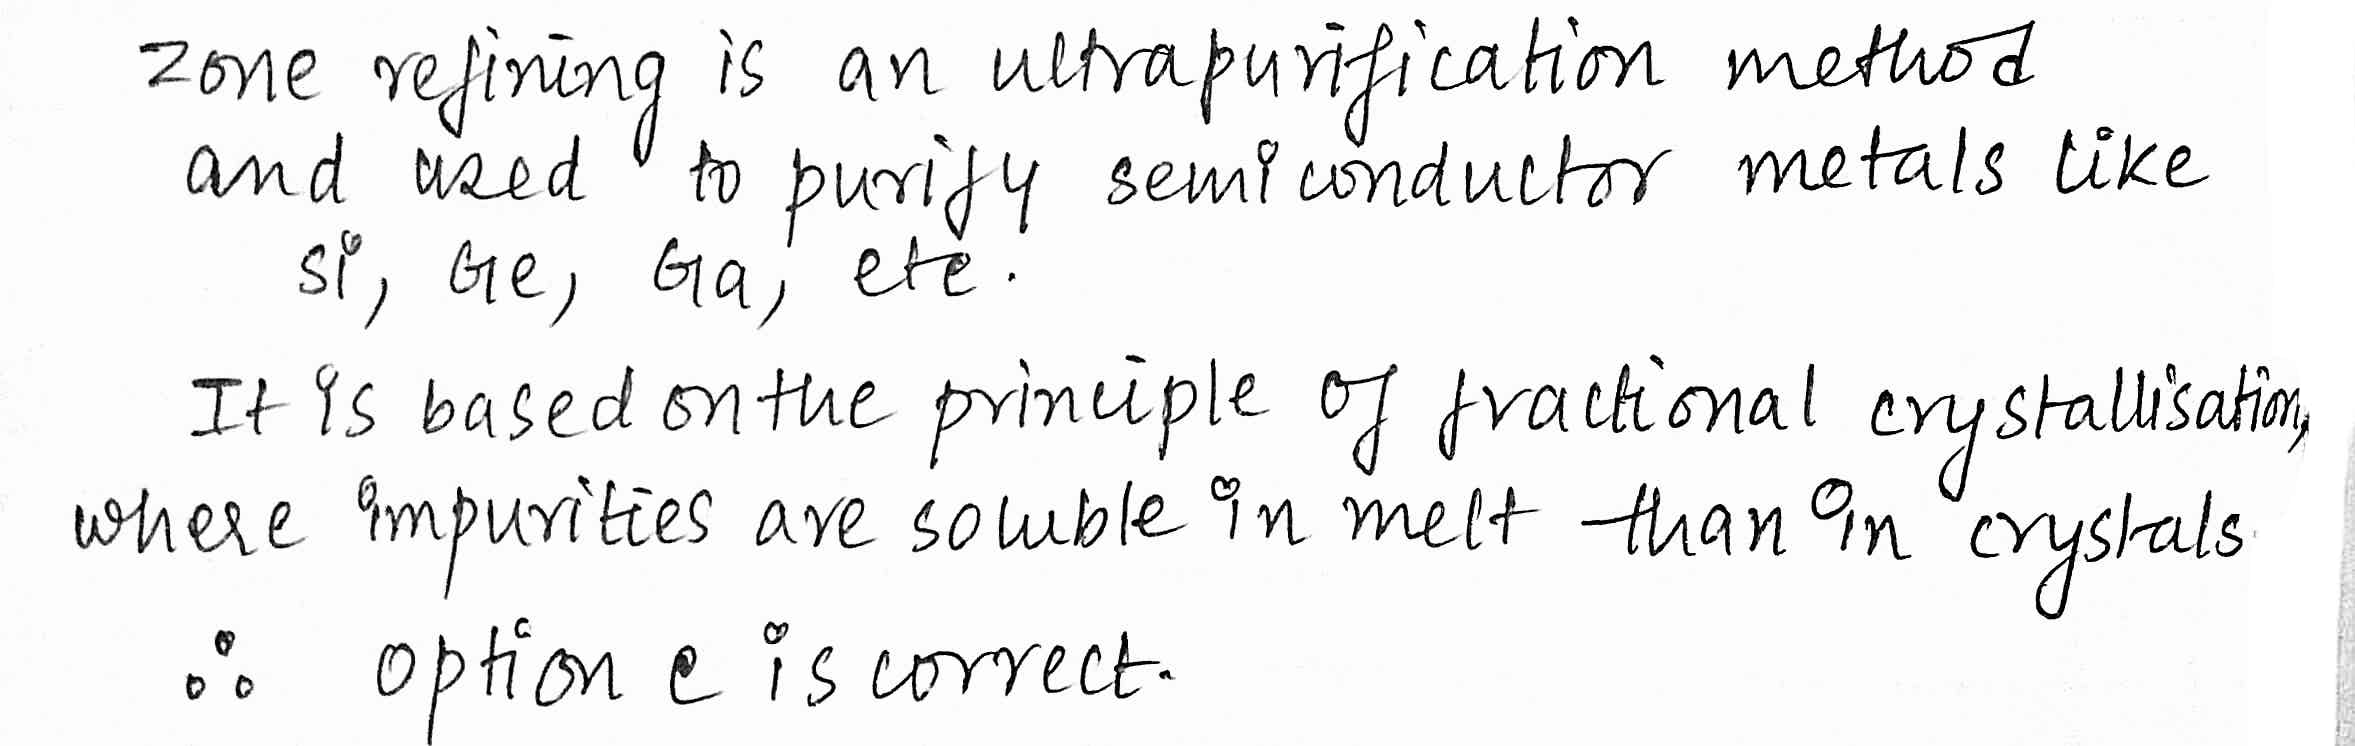 zone refining is an ultrapurification method
and used to purify semiconductor metals like
Si, Ge, Ga, etc.
It is based on the principle of fractional crystallisation,
where impurities are soluble in melt than in crystals
∴ option c is correct.